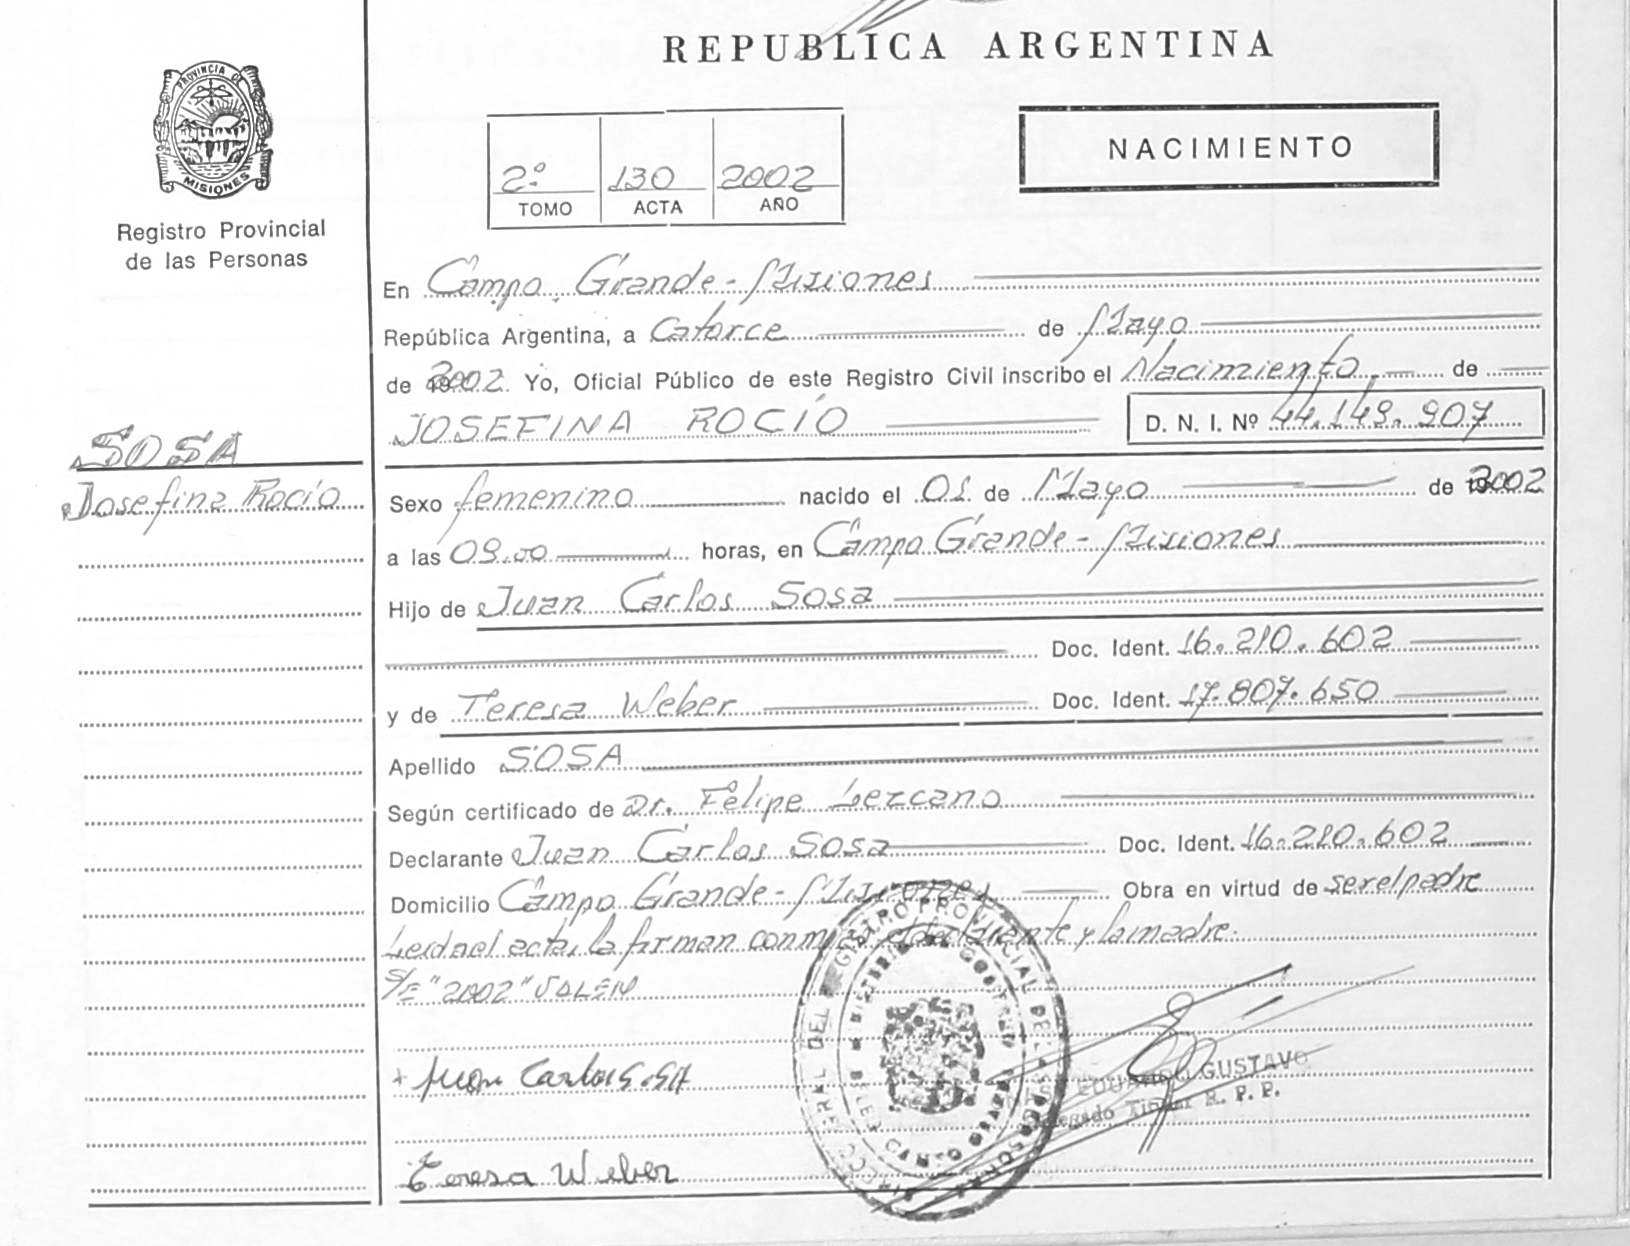 REPUBLICA ARGENTINA
PROVINCIA DE
MISIONES
Registro Provincial
de las Personas
2º 130 2002
TOMO ACTA AÑO
NACIMIENTO
En Campo Grande - Misiones
República Argentina, a Catorce de Mayo
de 2002 Yo, Oficial Público de este Registro Civil inscribo el Nacimiento de
JOSEFINA ROCÍO D. N. I. Nº 44.149.907
SOSA
Josefina Rocío
Sexo femenino nacido el 01 de Mayo de 2002
a las 09.00 horas, en Campo Grande - Misiones
Hijo de Juan Carlos Sosa
Doc. Ident. 16.210.602
y de Teresa Weber Doc. Ident. 17.807.650
Apellido SOSA
Según certificado de Dr. Felipe Lezcano
Declarante Juan Carlos Sosa Doc. Ident. 16.210.602
Domicilio Campo Grande - Misiones Obra en virtud de ser el padre
Leida el acta, la firman conmigo el declarante y la madre.
S/E "2002" VALEN
Juan Carlos SoSA
GUSTAVO
Titular R. P. P.
Teresa Weber
REGISTRO PROVINCIAL DE LAS PERSONAS